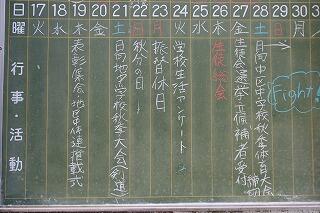 日 17 18 19 20 21 22 23 24 25 26 27 28 29 30
曜 火 水 木 金 土 日 月 火 水 木 金 土 日 月
行事・活動
表彰集会・地区中体連推戴式
日向地区中学校秋季大会(剣道)
秋分の日
振替休日
学校生活アンケート
生徒総会
生徒会選挙立候補者受付
締切
日向地区中学校秋季体育大会
Fight!